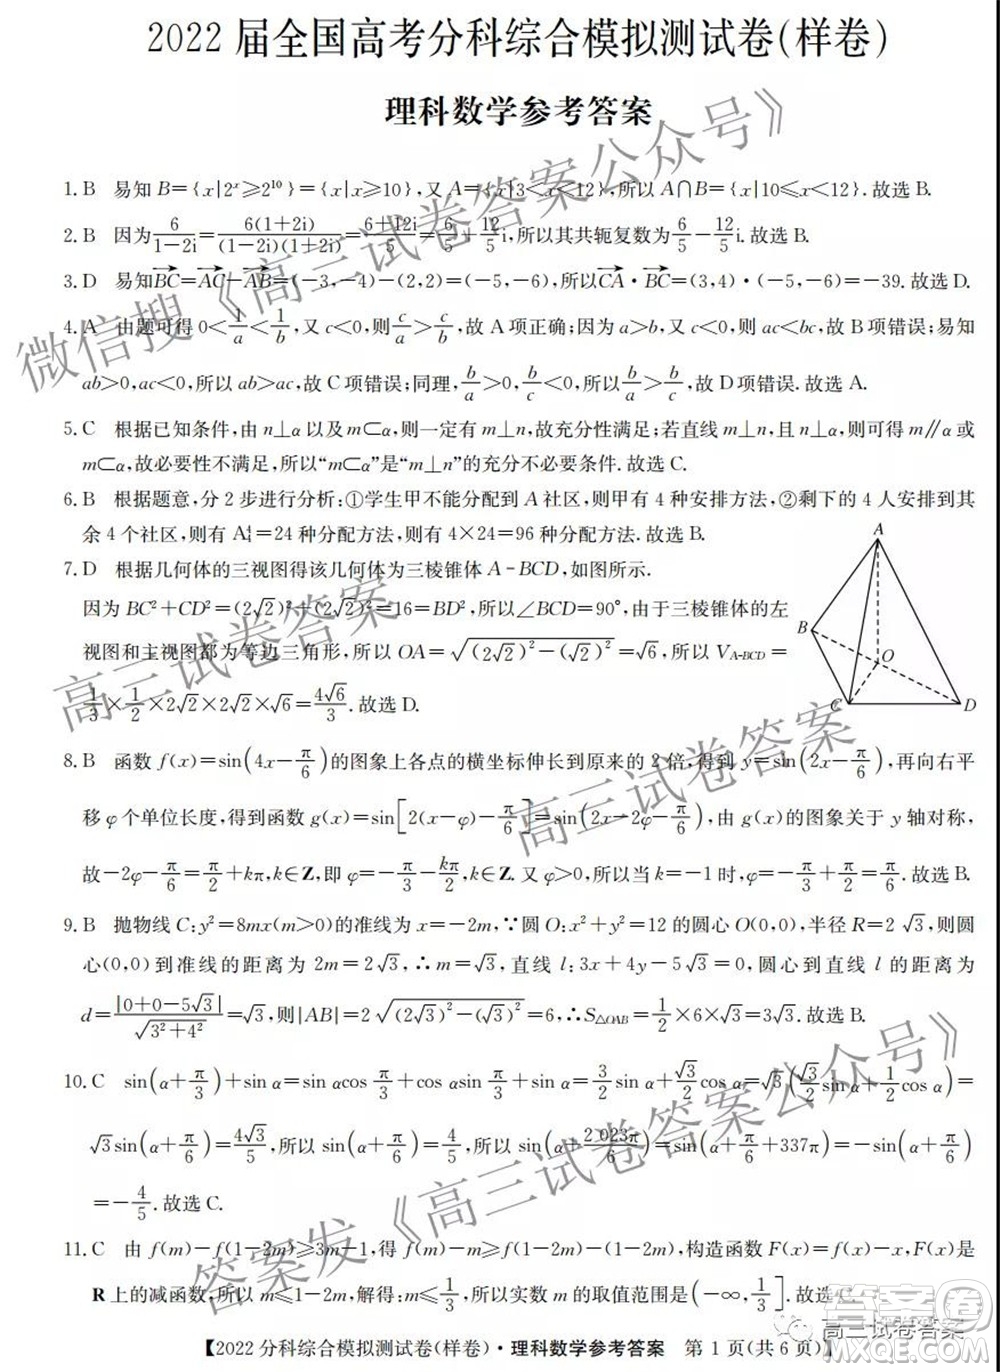 2022 届全国高考分科综合模拟测试卷(样卷)
理科数学参考答案
1. B 易知 B={x|2ˣ≥2¹⁰}={x|x≥10},又 A={x|3<x<12},所以 A∩B={x|10≤x<12}.故选 B.
2. B 因为 6/(1-2i)=6(1+2i)/((1-2i)(1+2i))=(6+12i)/5=6/5+12/5 i,所以其共轭复数为 6/5-12/5 i.故选 B.
3. D 易知 BC→=AC→-AB→=(-3,-4)-(2,2)=(-5,-6),所以 CA→·BC→=(3,4)·(-5,-6)=-39.故选 D.
4. A 由题可得 0<1/a<1/b,又 c<0,则 c/a>c/b,故 A 项正确;因为 a>b,又 c<0,则 ac<bc,故 B 项错误;易知
ab>0,ac<0,所以 ab>ac,故 C 项错误;同理,b/a>0,b/c<0,所以 b/a>b/c,故 D 项错误.故选 A.
5. C 根据已知条件,由 n⊥α 以及 m⊂α,则一定有 m⊥n,故充分性满足;若直线 m⊥n,且 n⊥α,则可得 m∥α 或
m⊂α,故必要性不满足,所以“m⊂α”是“m⊥n”的充分不必要条件.故选 C.
6. B 根据题意,分 2 步进行分析:①学生甲不能分配到 A 社区,则甲有 4 种安排方法,②剩下的 4 人安排到其
余 4 个社区,则有 A₄⁴=24 种分配方法,则有 4×24=96 种安排方法.故选 B.
7. D 根据几何体的三视图得该几何体为三棱锥体 A-BCD,如图所示.
因为 BC²+CD²=(2√2)²+(2√2)²=16=BD²,所以∠BCD=90°,由于三棱锥体的左
视图和主视图都为等边三角形,所以 OA=√((2√2)²-(√2)²)=√6,所以 V_A-BCD=
1/3×1/2×2√2×2√2×√6=4√6/3.故选 D.
A
B
O
C
D
8. B 函数 f(x)=sin(4x-π/6)的图象上各点的横坐标伸长到原来的 2 倍,得到 y=sin(2x-π/6),再向右平
移 φ 个单位长度,得到函数 g(x)=sin[2(x-φ)-π/6]=sin(2x-2φ-π/6),由 g(x)的图象关于 y 轴对称,
故-2φ-π/6=π/2+kπ,k∈Z,即 φ=-π/3-kπ/2,k∈Z.又 φ>0,所以当 k=-1 时,φ=-π/3+π/2=π/6.故选 B.
9. B 抛物线 C:y²=8mx(m>0)的准线为 x=-2m,∵圆 O:x²+y²=12 的圆心 O(0,0),半径 R=2√3,则圆
心(0,0)到准线的距离为 2m=2√3,∴m=√3,直线 l:3x+4y-5√3=0,圆心到直线 l 的距离为
d=|0+0-5√3|/√(3²+4²)=√3,则|AB|=2√((2√3)²-(√3)²)=6,∴S△OAB=1/2×6×√3=3√3.故选 B.
10. C sin(α+π/3)+sin α=sin αcos π/3+cos αsin π/3+sin α=3/2 sin α+√3/2 cos α=√3(√3/2 sin α+1/2 cos α)=
√3sin(α+π/6)=4√3/5,所以 sin(α+π/6)=4/5,所以 sin(α+2 023π/6)=sin(α+π/6+337π)=-sin(α+π/6)
=-4/5.故选 C.
11. C 由 f(m)-f(1-2m)≥3m-1,得 f(m)-m≥f(1-2m)-(1-2m),构造函数 F(x)=f(x)-x,F(x)是
R 上的减函数,所以 m≤1-2m,解得:m≤1/3,所以实数 m 的取值范围是(-∞,1/3].故选 C.
【2022 分科综合模拟测试卷(样卷)·理科数学参考答案 第 1 页(共 6 页)】
微信搜《高三试卷答案公众号》
高三试卷答案
高三试卷答案
答案发《高三试卷答案公众号》
高三试卷答案
答案圈
MXQE.COM